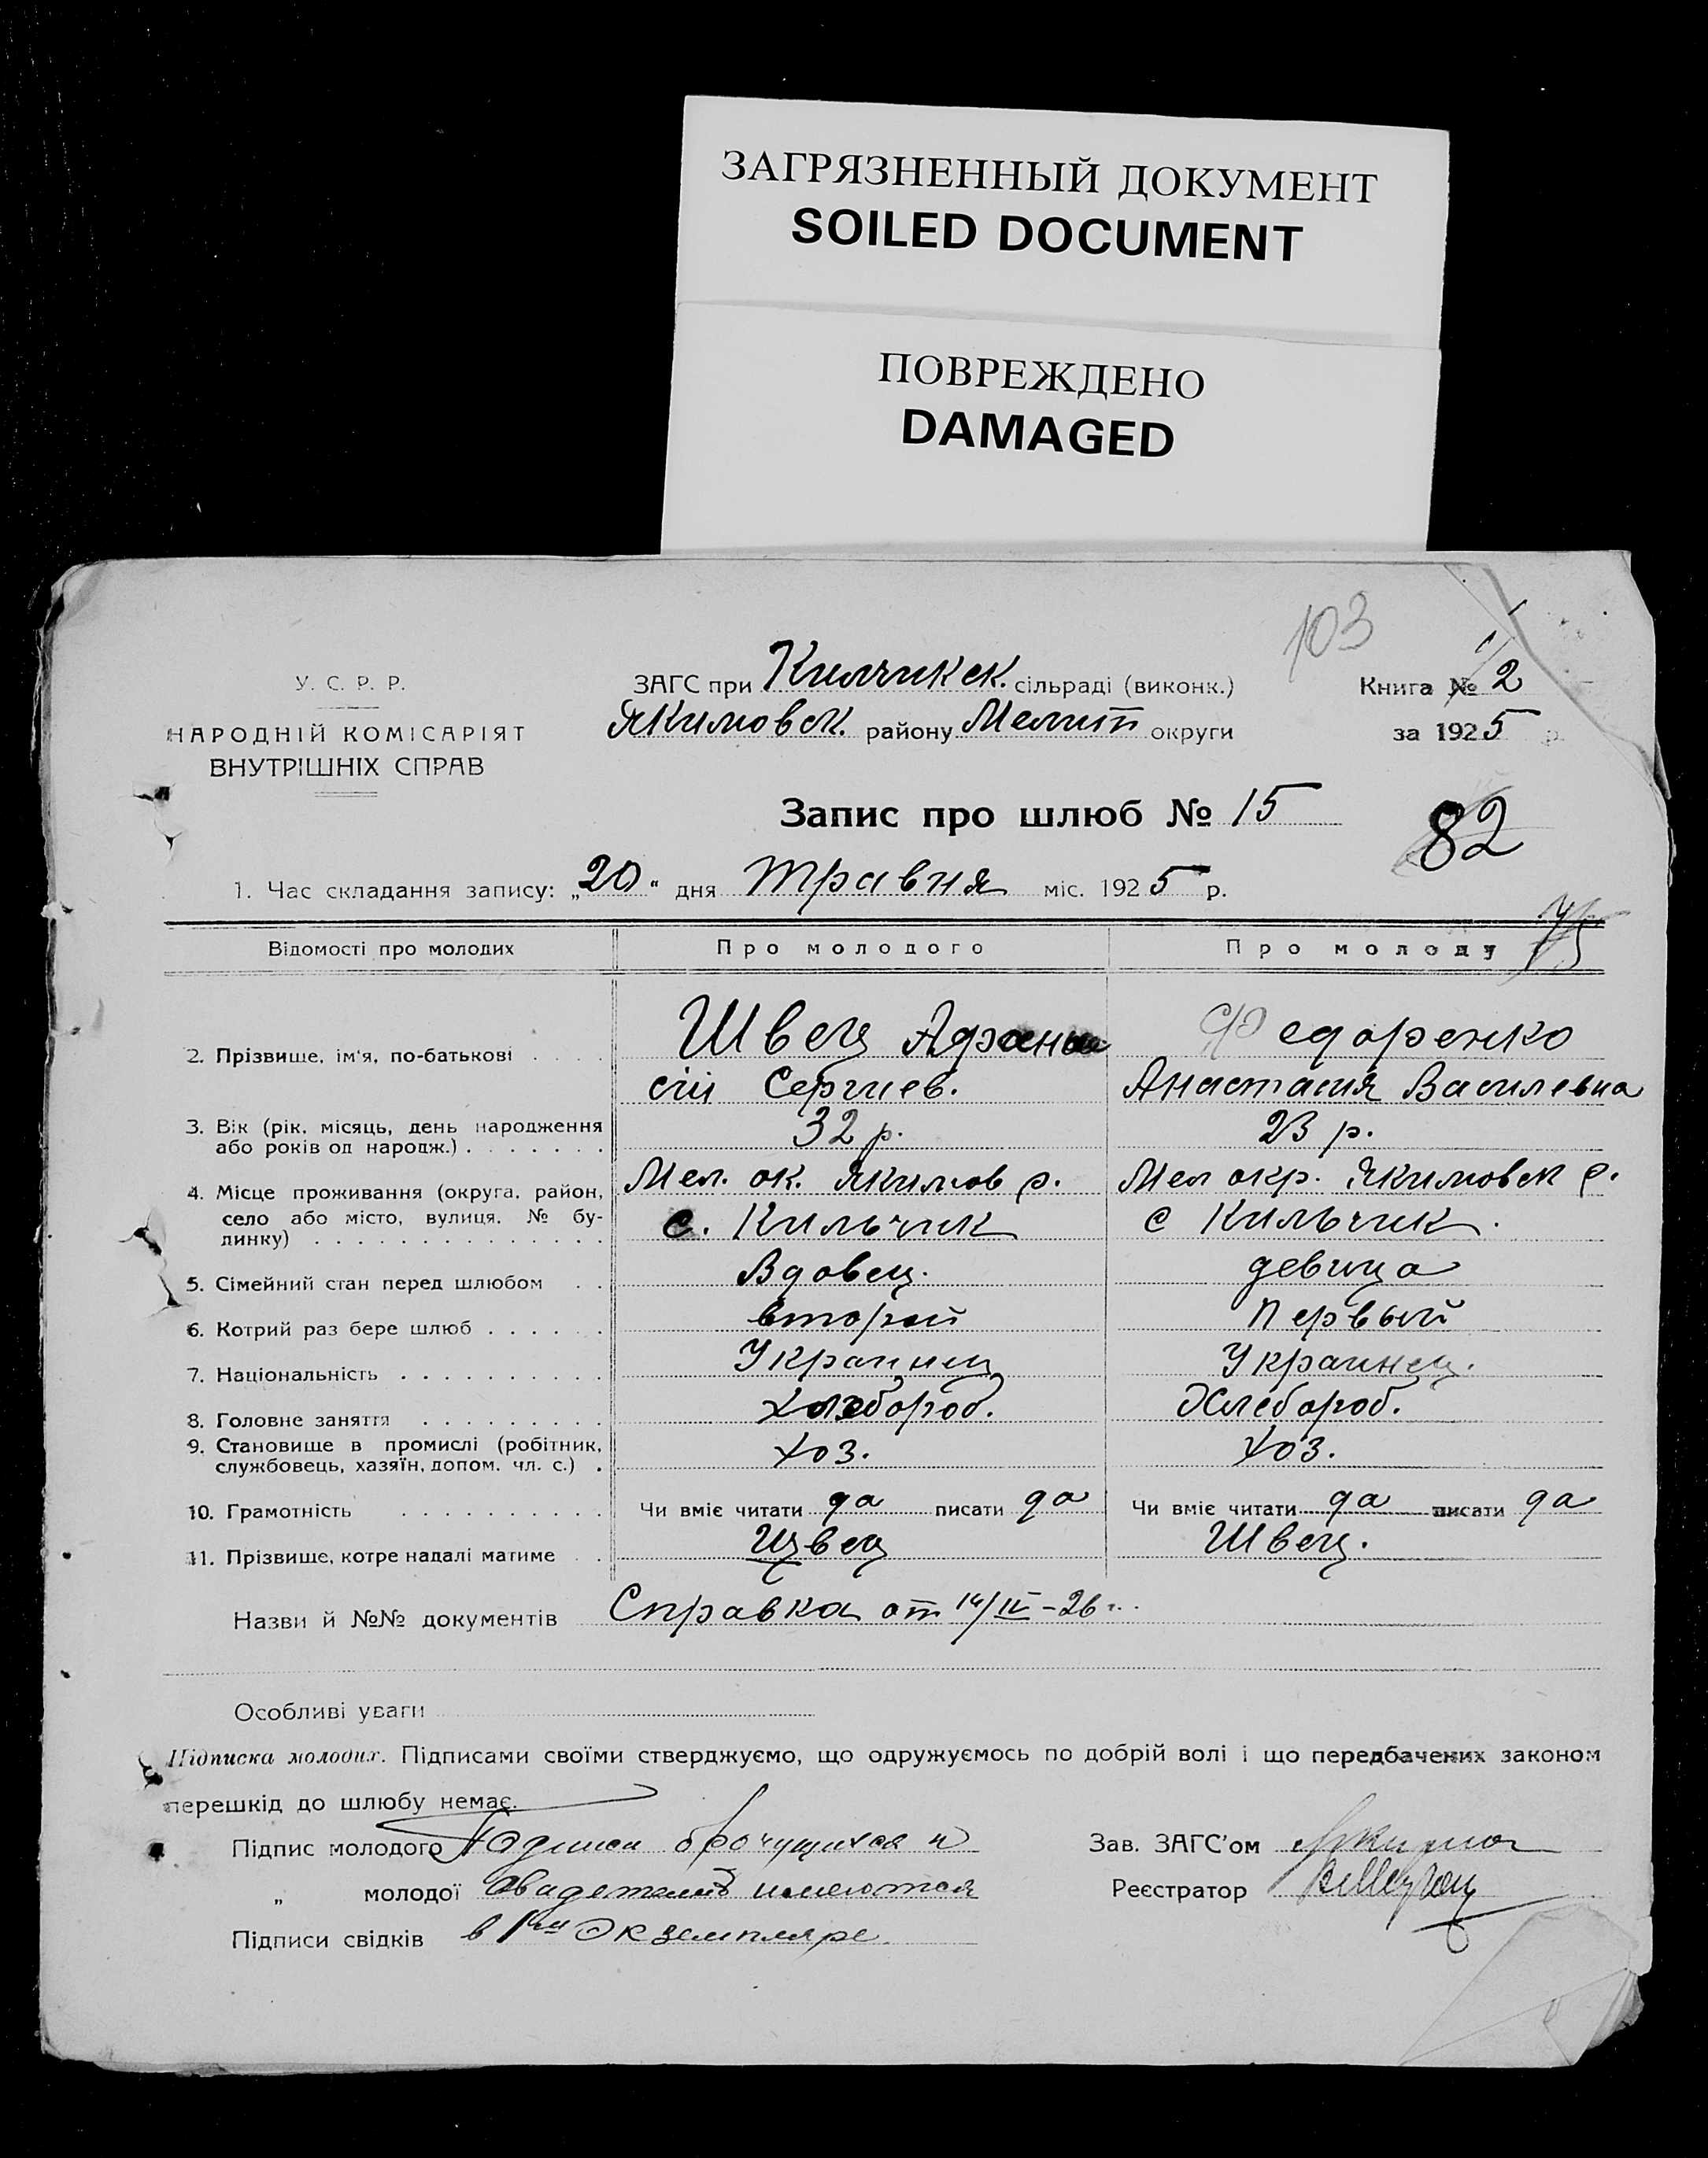 ЗАГРЯЗНЕННЫЙ ДОКУМЕНТ
SOILED DOCUMENT
ПОВРЕЖДЕНО
DAMAGED
103
У. С. Р. Р.
НАРОДНІЙ КОМІСАРІЯТ
ВНУТРІШНІХ СПРАВ
ЗАГС при Килчикск. сільраді (виконк.)
Якимовск. району Мелит округи
Книга № 2
за 1925 р.
Запис про шлюб № 15
82
1. Час складання запису: „20“ дня травня міс. 1925 р.
75
Відомості про молодих Про молодого Про молоду
2. Прізвище, ім'я, по-батькові Швец Афана Федоренко
сій Сергиев. Анастасия Василевна
3. Вік (рік, місяць, день народження 32 р. 23 р.
або років од народж.)
4. Місце проживання (округа, район, Мел. ок. Якимов р. Мел окр. Якимовск р.
село або місто, вулиця, № бу- с. Кильчик с Кильчик.
динку)
5. Сімейний стан перед шлюбом Вдовец. девица
6. Котрий раз бере шлюб второй первый
7. Національність Украинец Украинец.
8. Головне заняття хлебороб. Хлебороб.
9. Становище в промислі (робітник, хоз. хоз.
службовець, хазяїн, допом. чл. с.)
10. Грамотність Чи вміє читати да писати да Чи вміє читати да писати да
11. Прізвище, котре надалі матиме Швец Швец.
Назви й №№ документів Справка от 14/IV-26 г.
Особливі уваги
Підписка молодих. Підписами своїми стверджуємо, що одружуємось по добрій волі і що передбачених законом
перешкід до шлюбу немає.
Підпис молодого Подписи брачущихся и Зав. ЗАГС'ом
„ молодої свидетелей имеются Реєстратор
Підписи свідків в 1ом экземпляре